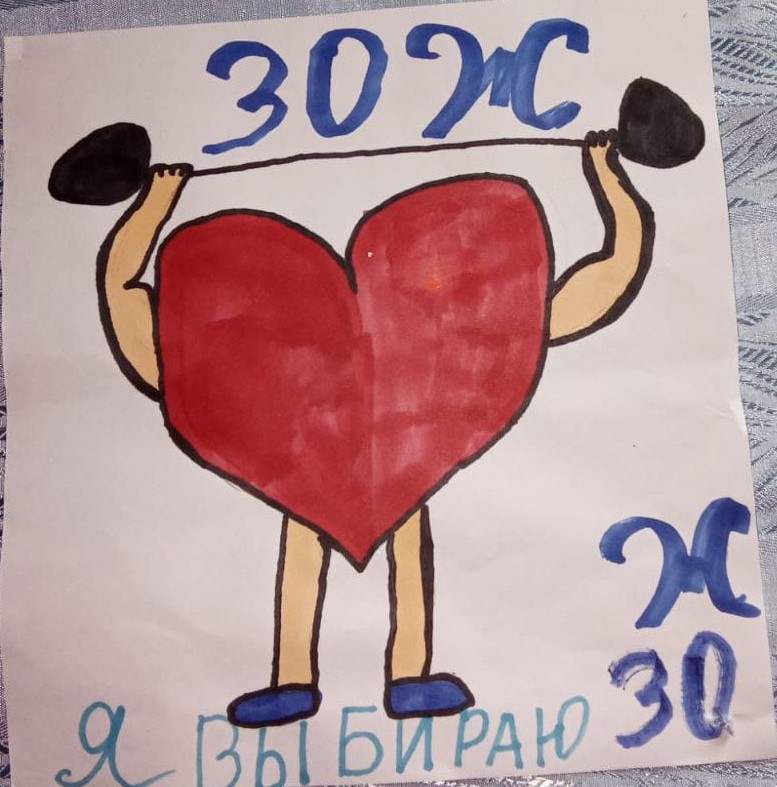 ЗОЖ
Ж
Я ВЫБИРАЮ ЗО